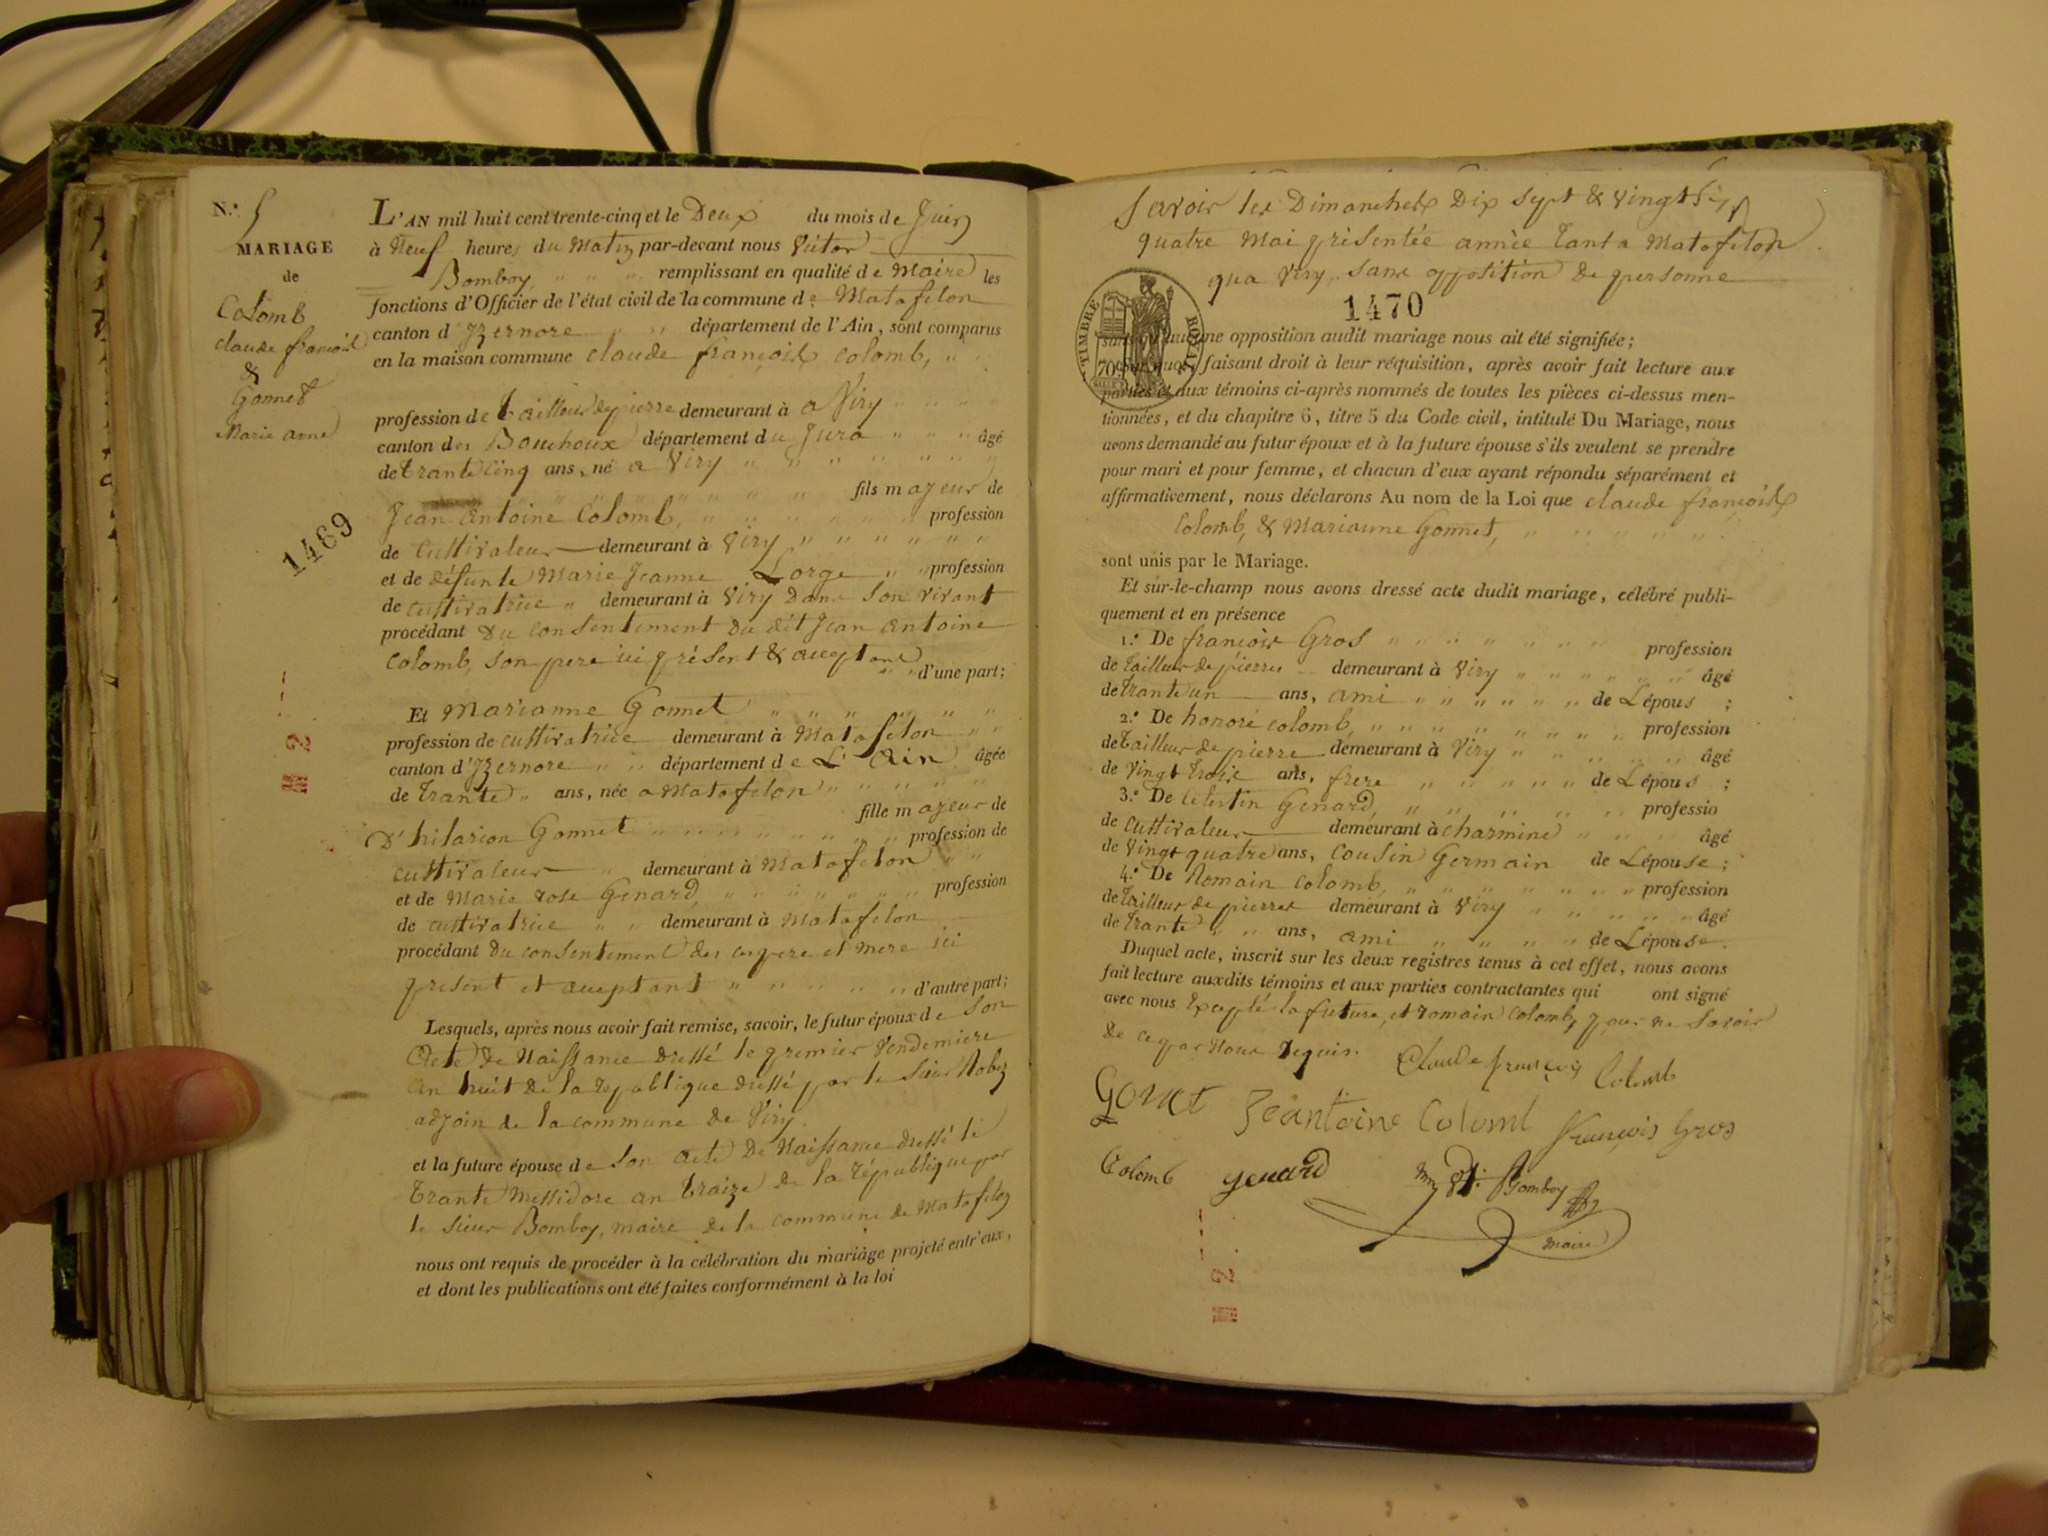 N.° 5
MARIAGE
de
Colomb
claude françois
&
Gonnet
Marie anne
1469
L'AN mil huit cent trente-cinq et le Deux du mois de Juin
à Neuf heures du Matin par-devant nous Victor
Bomboy, " " " remplissant en qualité de Maire les
fonctions d'Officier de l'état civil de la commune de Matafelon
canton d'Izernore " " département de l'Ain, sont comparus
en la maison commune claude françois colomb, " "
profession de tailleur de pierre demeurant à a Viry " " "
canton des Bouchoux département du Jura " " " âgé
de trante cinq ans, né a Viry " " " " " " "
fils majeur de
Jean antoine Colomb, " " " " " " profession
de cultivateur demeurant à Viry " " " " " "
et de défunte Marie Jeanne Lorge " " profession
de cultivatrice " demeurant à Viry Dans Son vivant
procédant du consentement du dit Jean antoine
colomb, son pere ici présent & acceptant
" " d'une part;
Et Marianne Gonnet " " " " " "
profession de cultivatrice demeurant à Matafelon " "
canton d'Izernore " " département de L'Ain âgée
de trante " ans, née a Matafelon " " " " "
fille majeur de
D'hilarion Gonnet " " " " " " " profession de
cultivateur " demeurant à Matafelon " "
et de Marie rose Genard " " " " " " profession
de cultivatrice " " demeurant à Matafelon
procédant du consentement des ces pere et mere ici
présent et acceptant " " " " " d'autre part;
Lesquels, après nous avoir fait remise, savoir, le futur époux de son
acte de Naissance dressé le premier Vendemiere
an huit de la république dressé par le Sieur Robez
adjoin de la commune de Viry.
et la future épouse de son acte de Naissance dressé le
trante Messidore an traize de la république par
le sieur Bomboy, maire de la commune de Matafelon
nous ont requis de procéder à la célébration du mariage projeté entr'eux,
et dont les publications ont été faites conformément à la loi
Savoir les Dimanches Dix sept & vingt
quatre Mai présentée année tant a Matafelon
qua Viry, sans opposition de personne
1470
TIMBRE ROYAL
70
sans qu'aucune opposition audit mariage nous ait été signifiée;
faisant droit à leur réquisition, après avoir fait lecture aux
parties et aux témoins ci-après nommés de toutes les pièces ci-dessus men-
tionnées, et du chapitre 6, titre 5 du Code civil, intitulé Du Mariage, nous
avons demandé au futur époux et à la future épouse s'ils veulent se prendre
pour mari et pour femme, et chacun d'eux ayant répondu séparément et
affirmativement, nous déclarons Au nom de la Loi que claude françois
Colomb, & Marianne Gonnet, " " " " "
sont unis par le Mariage.
Et sur-le-champ nous avons dressé acte dudit mariage, célébré publi-
quement et en présence
1.° De françois Gros " " " " " " " profession
de tailleur de pierres demeurant à Viry " " " " " " âgé
de trante un ans, ami " " " " " " de Lépous ;
2.° De honoré colomb, " " " " " " " profession
de tailleur de pierre demeurant à Viry " " " " " âgé
de vingt trois ans, frere " " " " " de Lépous ;
3.° De Celestin Genard, " " " " " " professio
de cultivateur demeurant à charmine " " " âgé
de vingt quatre ans, cousin Germain de Lépouse;
4.° De Romain colomb, " " " " " " profession
de tailleur de pierres demeurant à Viry " " " " " âgé
de trante " " ans, ami " " " " de Lépouse.
Duquel acte, inscrit sur les deux registres tenus à cet effet, nous avons
fait lecture auxdits témoins et aux parties contractantes qui ont signé
avec nous Excepté la future, et romain colomb, pour ne Savoir
de ce par Nous requis.
Claude françois Colomb
Gonet Jeantoine Colomb françois Gros
Colomb genard Bomboy
maire